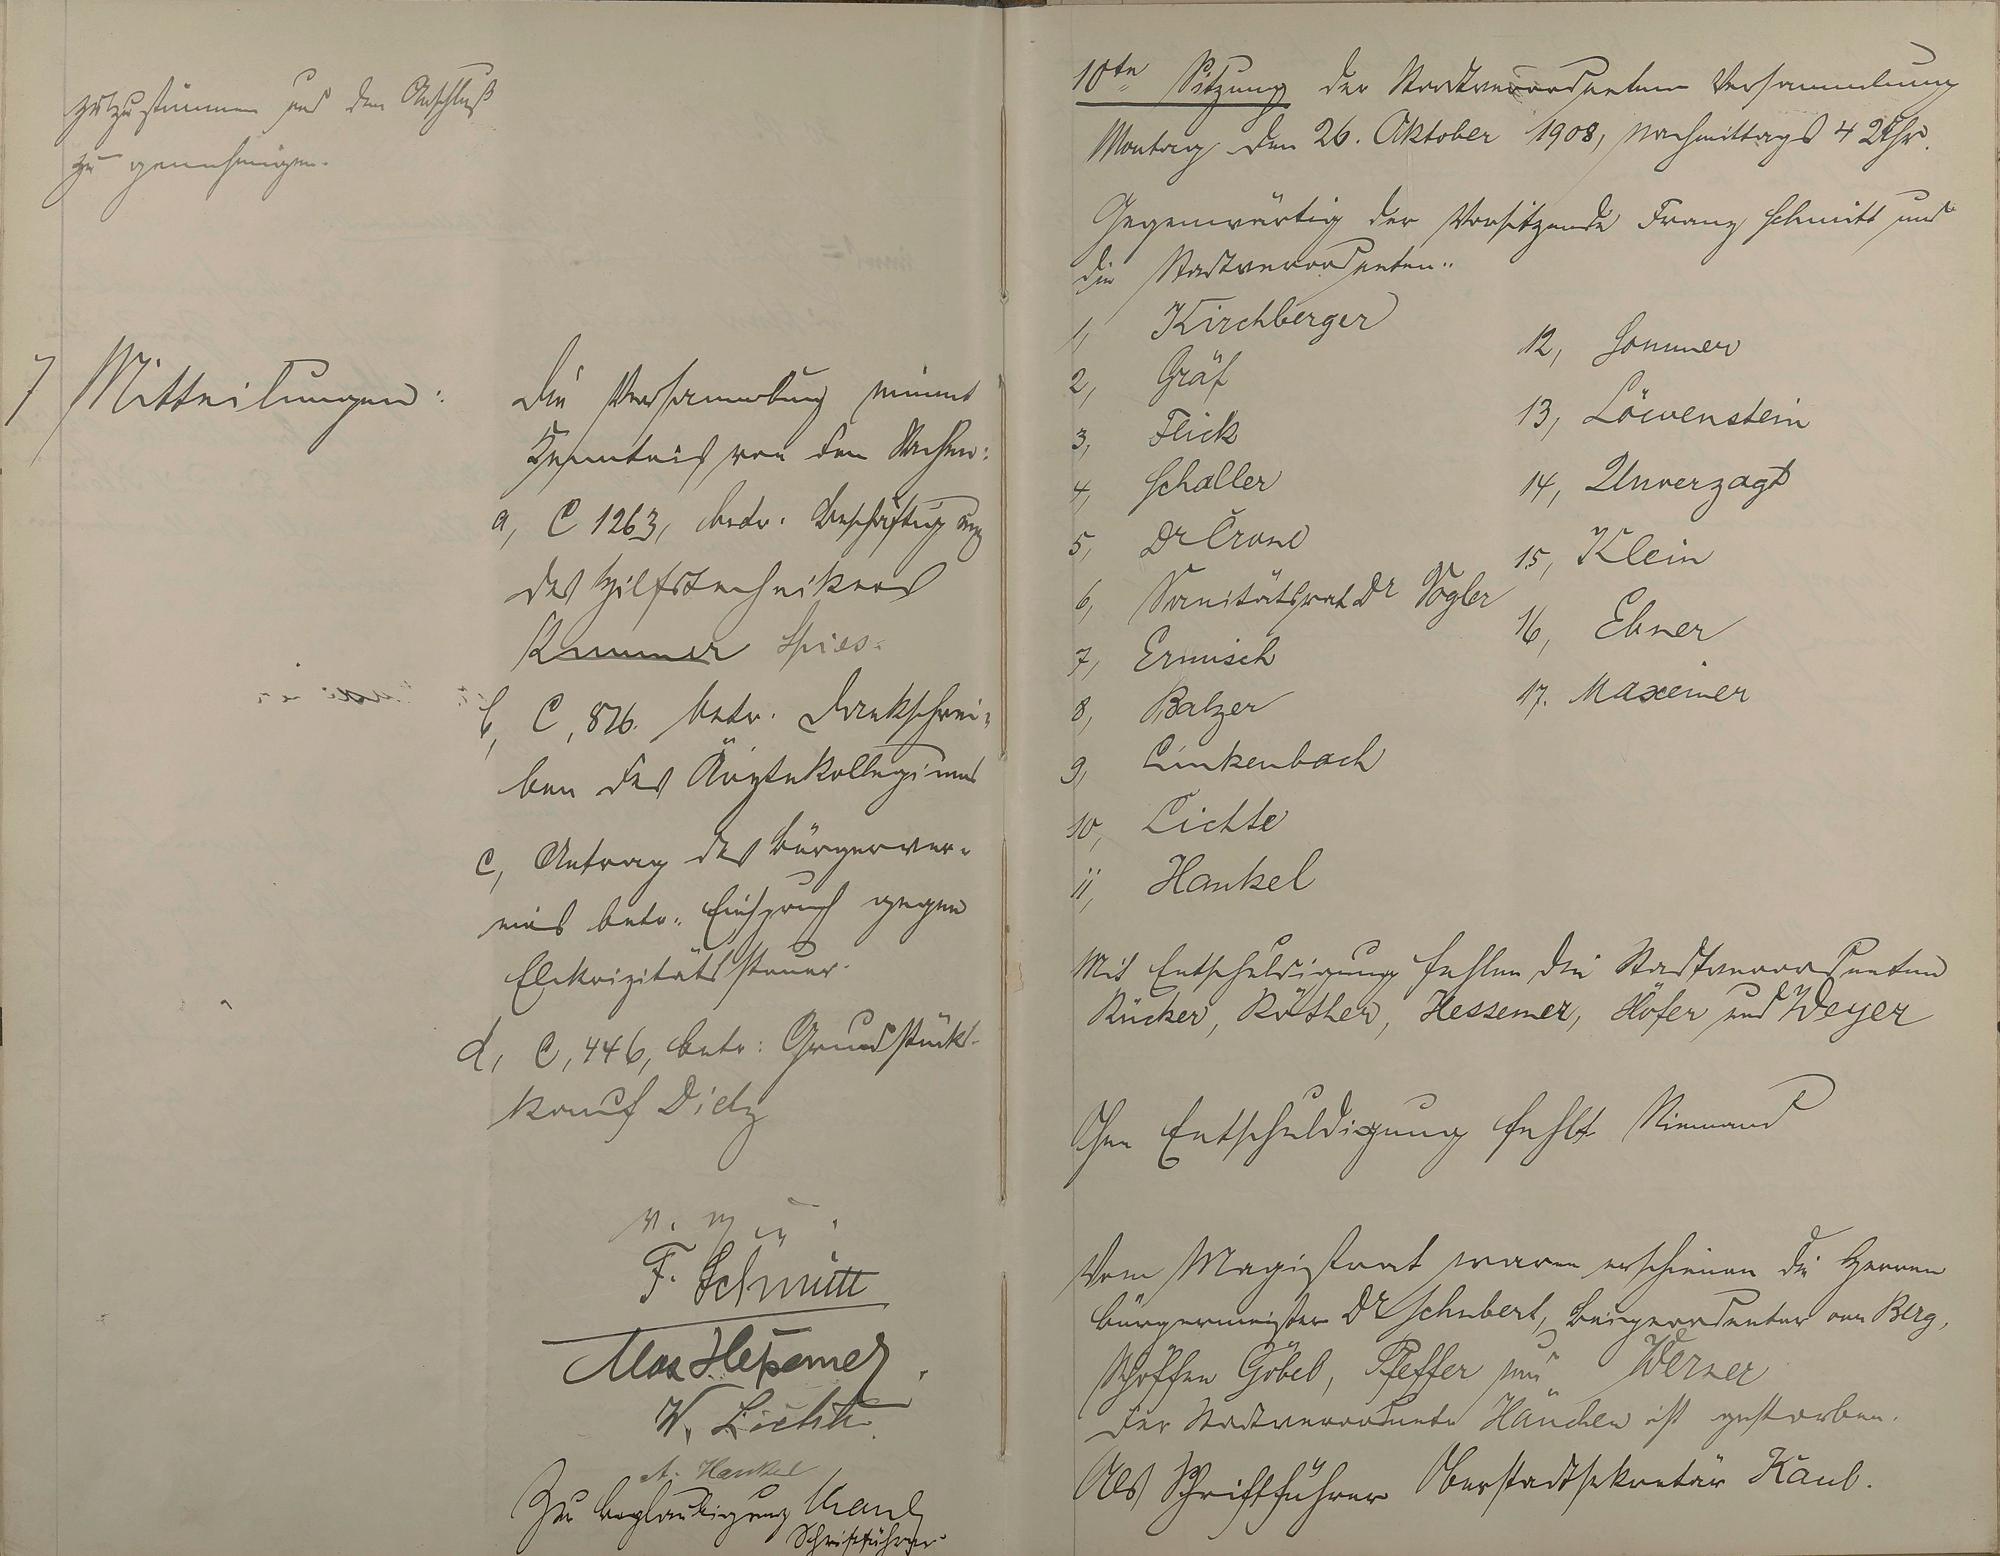 zuzustimmen und den Anschluß
zu genehmigen.
7 Mitteilungen:
Die Versammlung nimmt
Kenntnis von den Sachen:
a, C 1263, betr. Beschäftigung
des Hilfstechnikers
Kummer Spies.
b, C, 826. betr. Dankschrei-
ben des Ärztekollegiums
c, Antrag des Bürgerver-
eins betr. Einspruch gegen
Elekrizitätssteuer.
d, C, 446, betr: Grundstücks-
kauf Dietz
v. g. u.
F. Schmitt
Max Hessemer
W. Lichte
A. Hankel
Zur Beglaubigung Kaul
Schriftführer
10te Sitzung der Stadtverordneten Versammlung
Montag den 26. Oktober 1908, nachmittags 4 Uhr.
Gegenwärtig der Vorsitzende Franz Schmitt und
die Stadtverordneten:
1, Kirchberger
2, Gräf
3, Flick
4, Schaller
5, Dr Crone
6, Sanitätsrat Dr Vogler
7, Ermisch
8, Balzer
9, Linkenbach
10, Lichte
11, Hankel
12, Sommer
13, Löwenstein
14, Unverzagt
15, Klein
16, Ebner
17. Maxeiner
Mit Entschuldigung fehlen die Stadtverordneten
Rücker, Röther, Hessemer, Höfer und Weyer
Ohne Entschuldigung fehlt Niemand
Vom Magistrat waren erschienen die Herren
Bürgermeister Dr Schubert, Beigeordneter von Berg,
Schöffen Göbel, Pfeffer und Werner
Der Stadtverordnete Hänchen ist gestorben.
Als Schriftführer Oberstadtsekretär Kaul.